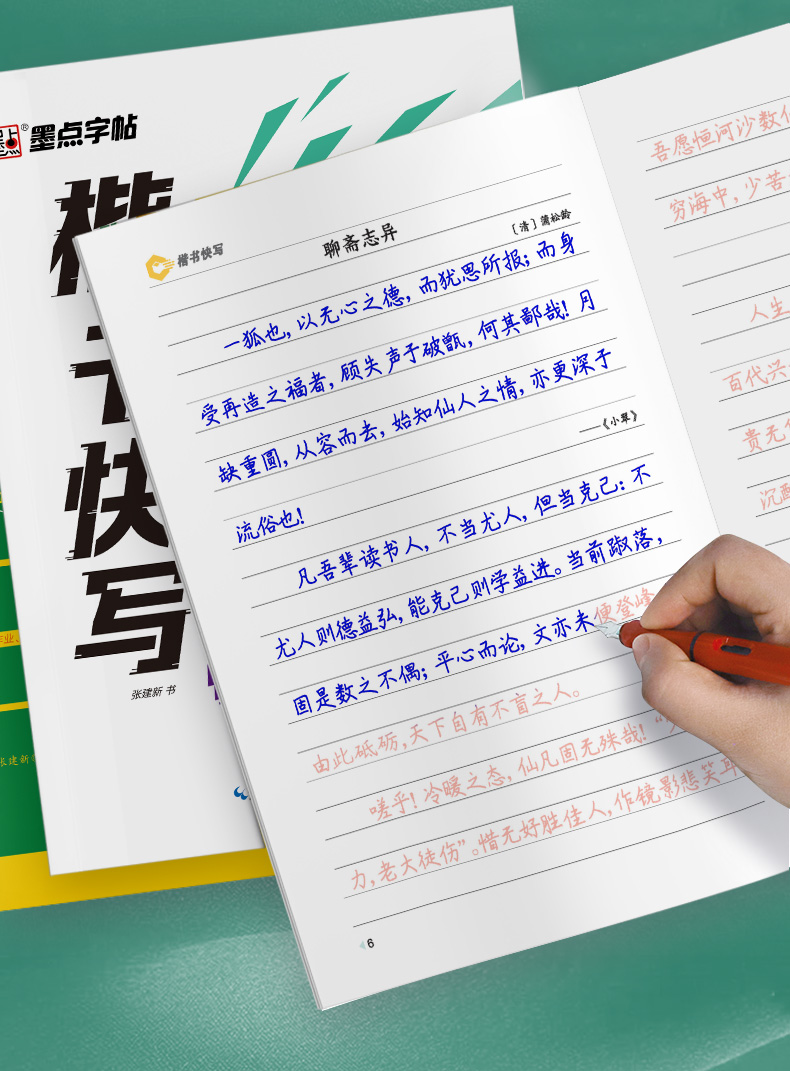 墨点字帖
®
楷书快写
张建新 书
张建新
楷书快写
聊斋志异
［清］蒲松龄
一狐也，以无心之德，而犹思所报；而身
受再造之福者，顾失声于破甑，何其鄙哉！月
缺重圆，从容而去，始知仙人之情，亦更深于
流俗也！
——《小翠》
凡吾辈读书人，不当尤人，但当克己：不
尤人则德益弘，能克己则学益进。当前踧落，
固是数之不偶；平心而论，文亦未便登峰
由此砥砺，天下自有不盲之人。
嗟乎！冷暖之态，仙凡固无殊哉！“
力，老大徒伤”。惜无好胜佳人，作镜影悲笑耳
6
吾愿恒河沙数
穷海中，少苦
人生
百代兴
贵无
沉